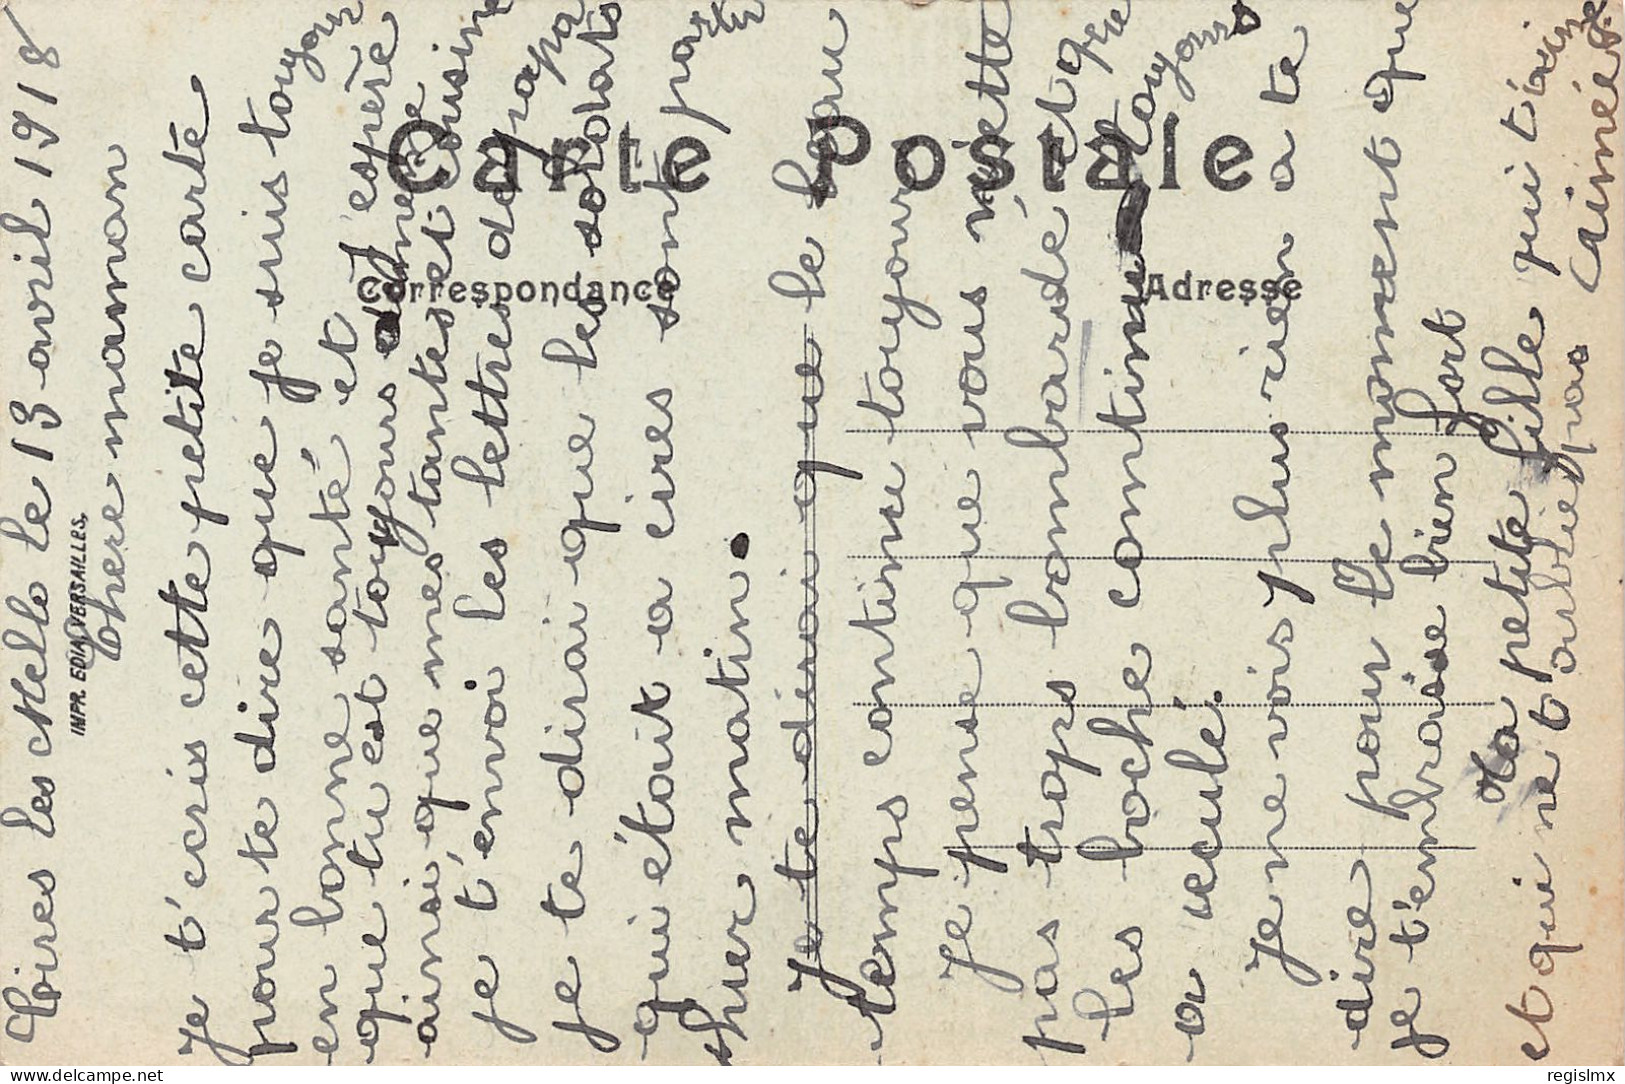 Cires les Mello le 13 avril 1918
Chere maman
Je t'ecris cette petite carte
pour te dire que je suis toujour
en bonne santé et j'espère
que tu est toujours de même
ainsi que mes tantes et cousine
je t'envoi les lettres de papa
je te dirai que les soldats
qui étoit a cires sont par
thier matin.
Je te dirai que le beau
temps continue toujour
Je pense que vous n'ette
pas trops bombardé et que
les boche continue toujours
a reculé.
Je ne vois plus rien a te
dire pour le moment que
je t'embrasse bien fort
Ta petite fille qui t'aime
et qui ne t'oublie pas Aimée
Carte Postale
Correspondance
Adresse
IMPR. EDIA VERSAILLES.
www.delcampe.net
regislmx